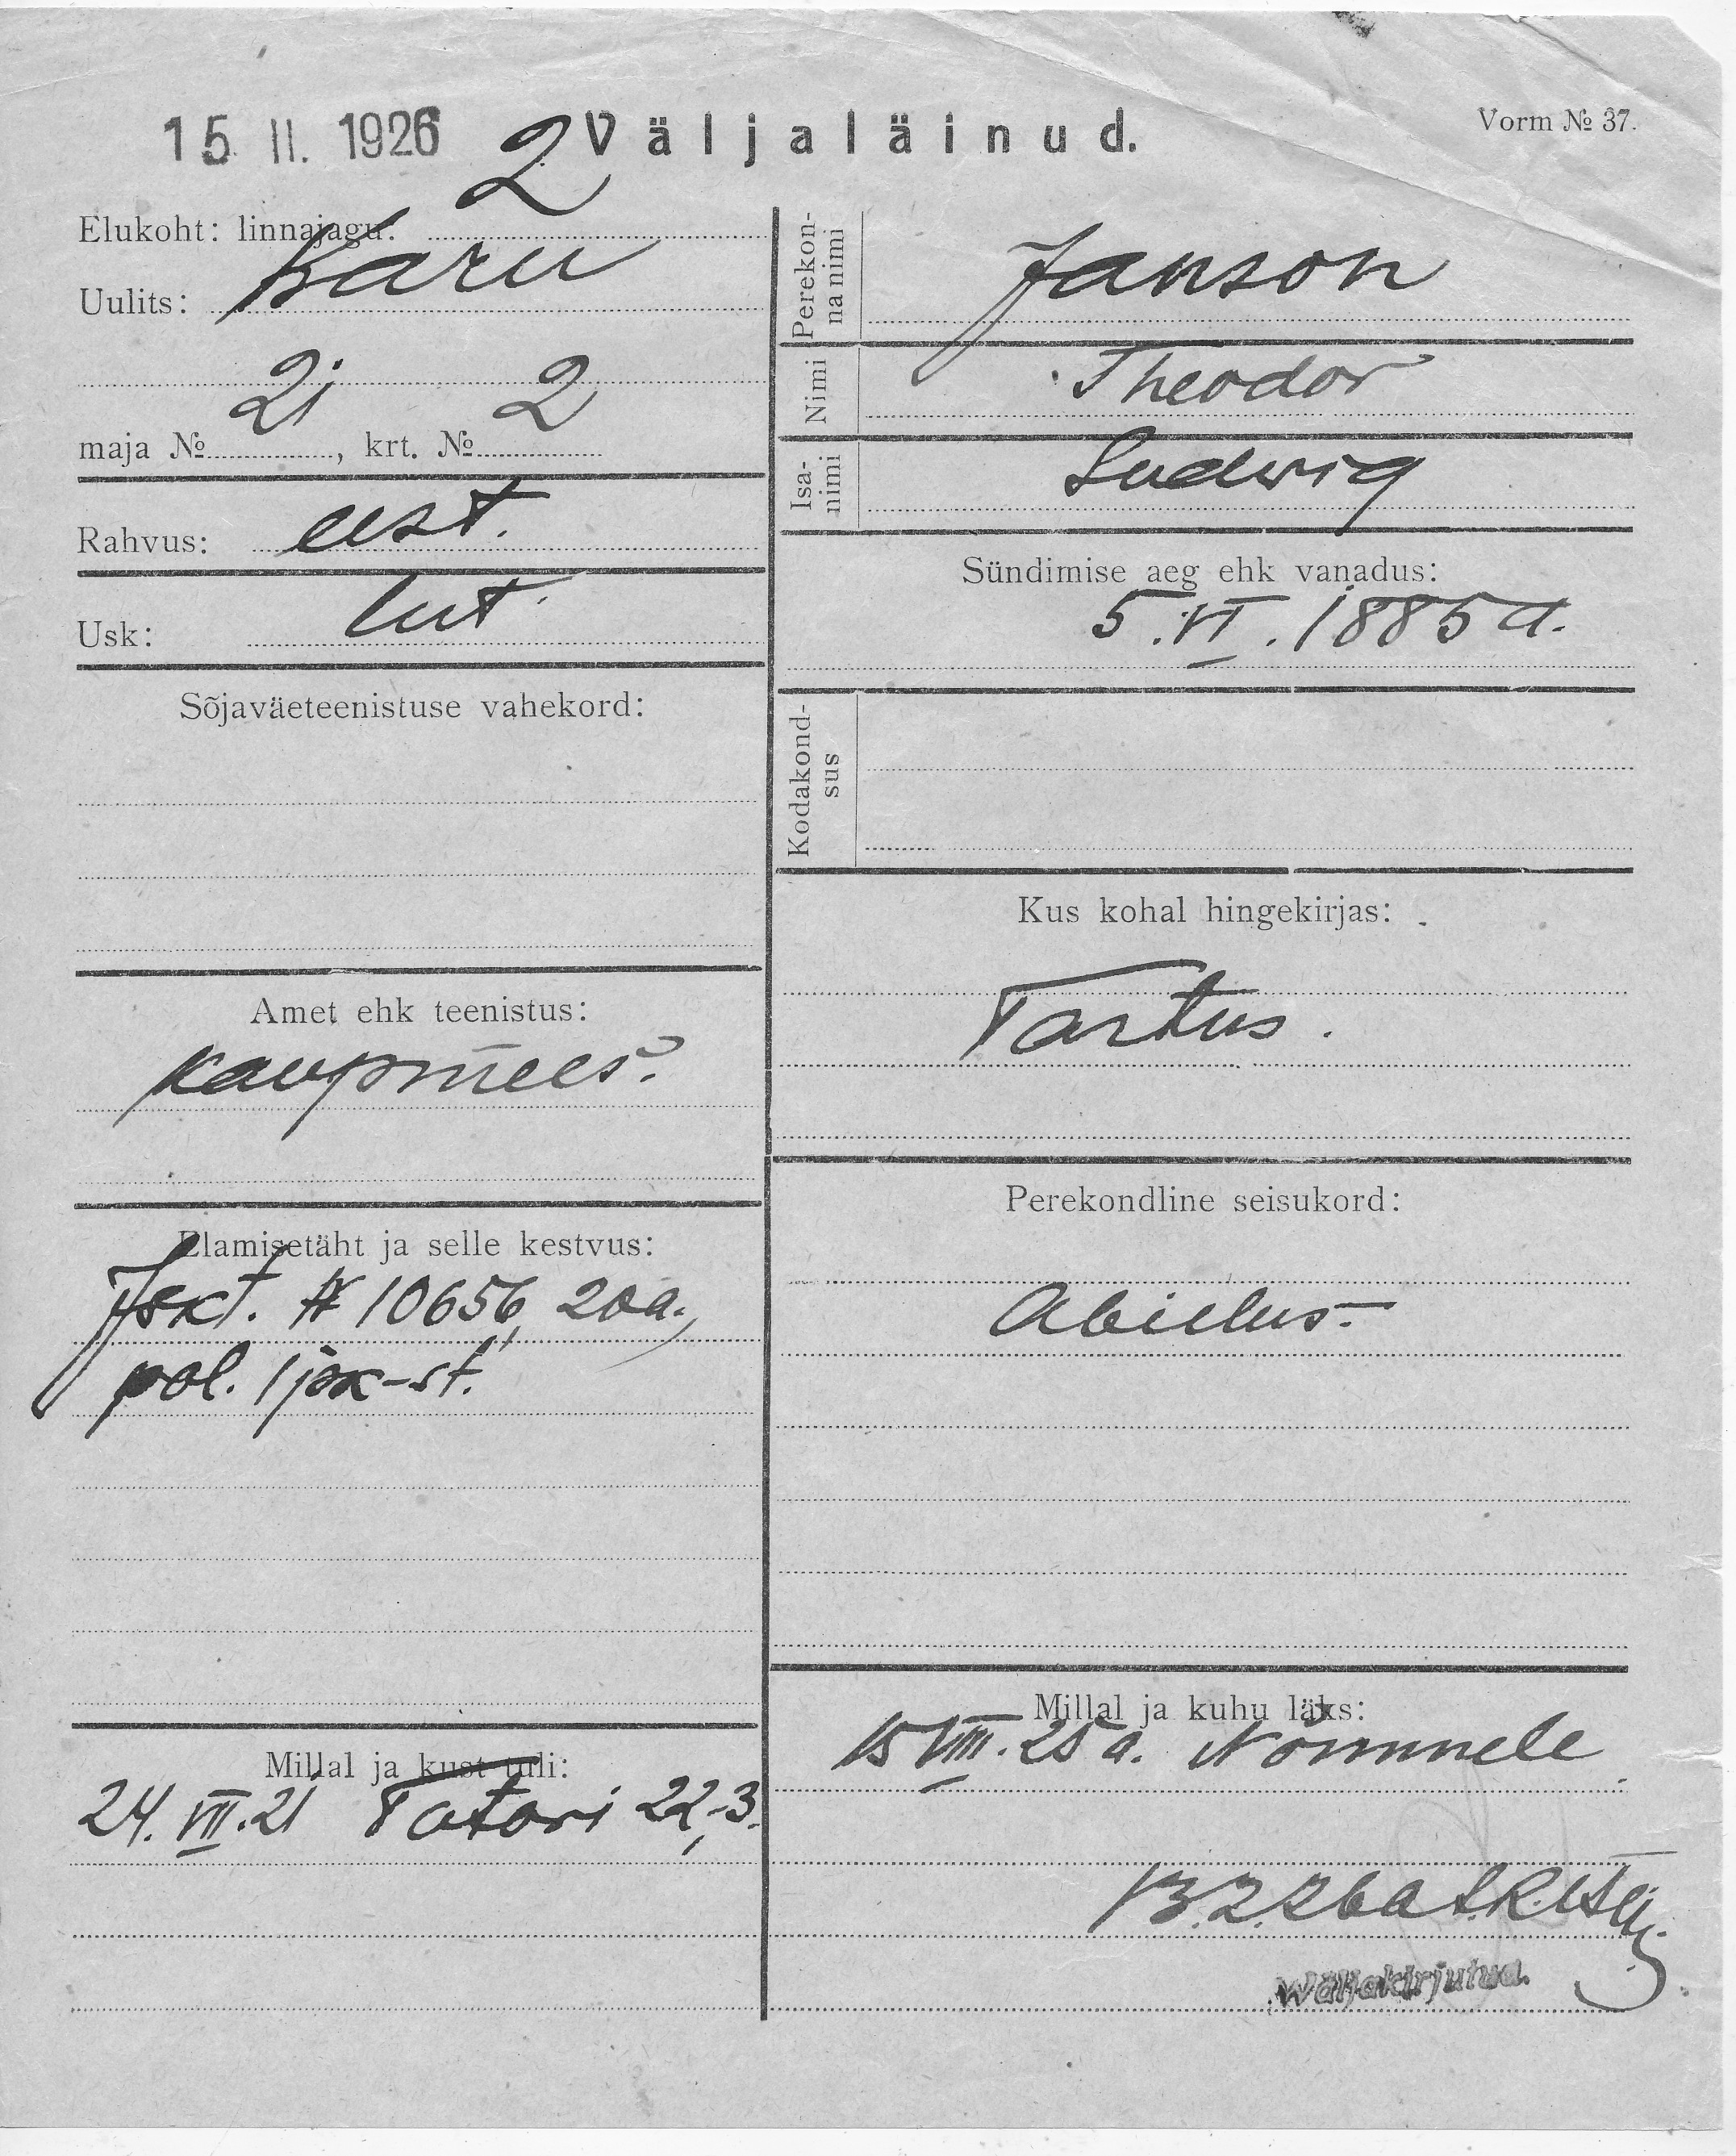 15 II. 1926
2
Väljaläinud.
Vorm № 37.
Elukoht: linnajagu:
Uulits: Karu
maja № 21, krt. № 2
Rahvus: eest.
Usk: lut.
Sõjaväeteenistuse vahekord:
Amet ehk teenistus:
kaupmees.
Elamisetäht ja selle kestvus:
Iskt. № 10656, 20a.,
pol. 1 jsk-st.
Millal ja kust tuli:
24. VII. 21 Tatari 22-3.
Perekonna nimi
Janson
Nimi
Theodor
Isanimi
Ludwig
Sündimise aeg ehk vanadus:
5. VI. 1885 a.
Kodakondsus
Kus kohal hingekirjas:
Tartus.
Perekondline seisukord:
Abielus.
Millal ja kuhu läks:
15 VIII. 25 a. Nõmmele
Wäljakirjutud.